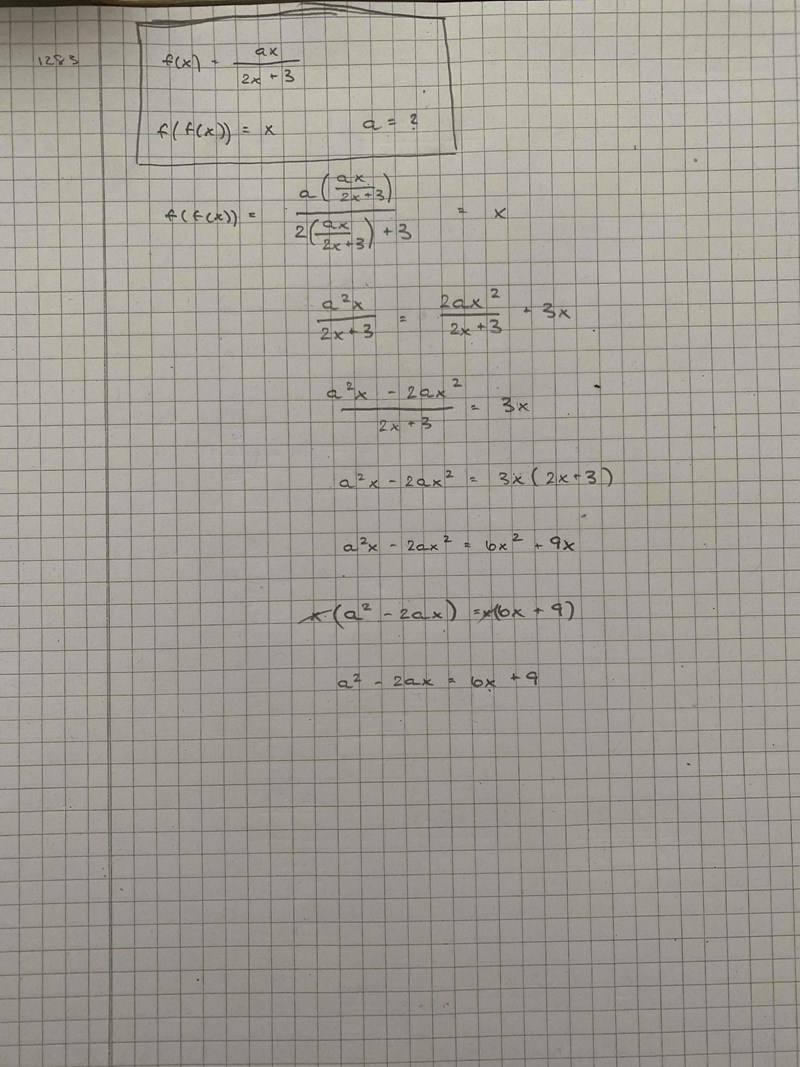 1283
f(x) = ax / (2x + 3)
f(f(x)) = x a = ?
f(f(x)) = a(ax / (2x + 3)) / (2(ax / (2x + 3)) + 3) = x
a²x / (2x + 3) = 2ax² / (2x + 3) + 3x
(a²x - 2ax²) / (2x + 3) = 3x
a²x - 2ax² = 3x(2x + 3)
a²x - 2ax² = 6x² + 9x
x(a² - 2ax) = x(6x + 9)
a² - 2ax = 6x + 9